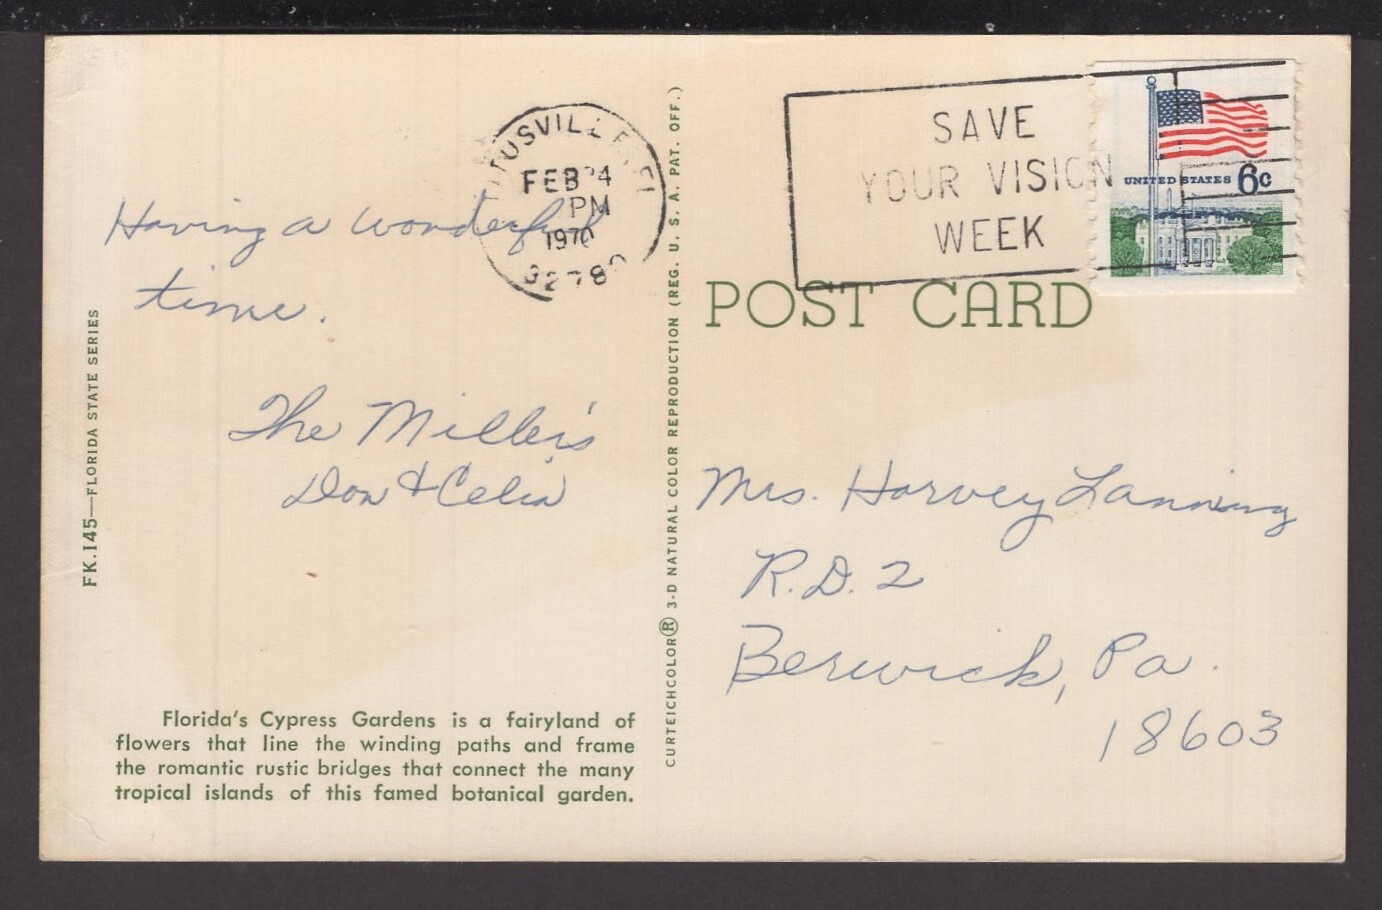 Having a wonderful
time.
The Miller's
Don & Celia
FK.145—FLORIDA STATE SERIES
Florida's Cypress Gardens is a fairyland of
flowers that line the winding paths and frame
the romantic rustic bridges that connect the many
tropical islands of this famed botanical garden.
CURTEICHCOLOR® 3-D NATURAL COLOR REPRODUCTION (REG. U. S. A. PAT. OFF.)
TITUSVILLE, FL
FEB 24
PM
1970
32780
SAVE
YOUR VISION
WEEK
UNITED STATES 6c
POST CARD
Mrs. Harvey Lanning
R.D. 2
Berwick, Pa.
18603